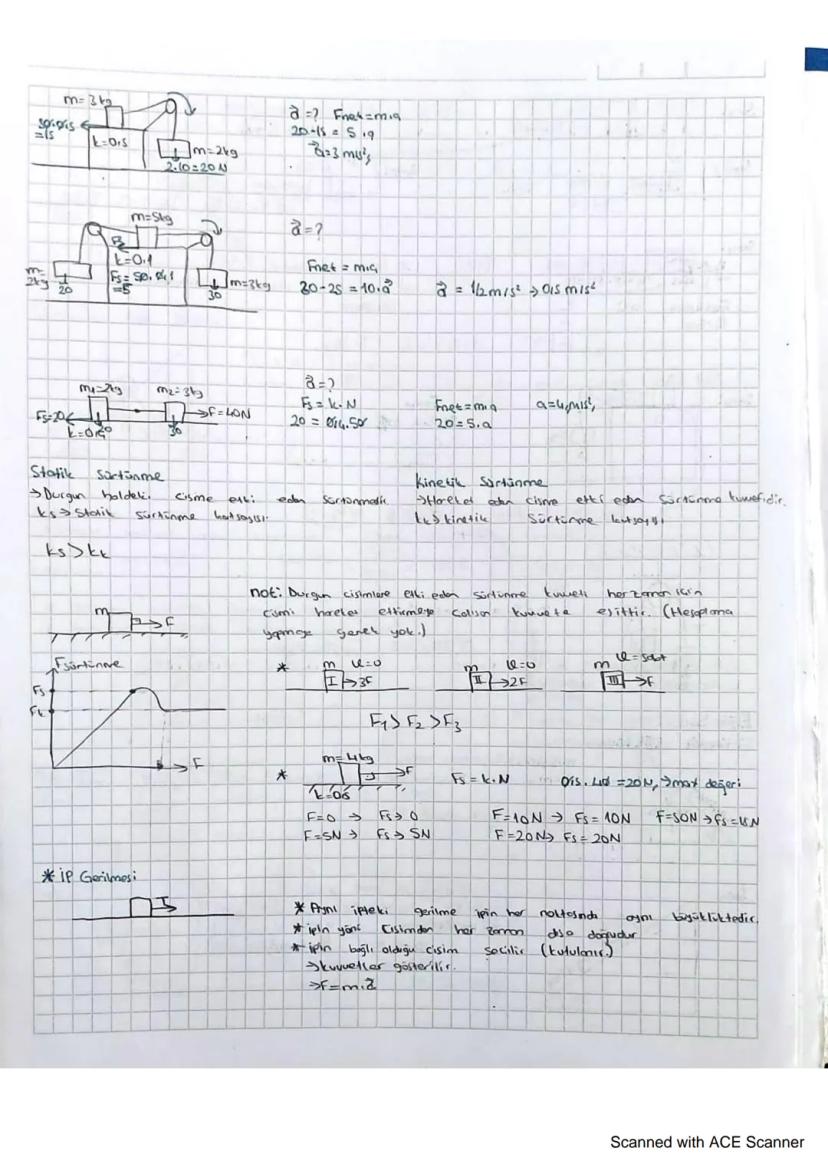 m=3kg
30.0,5
=15
k=0,5
m=2kg
2.10=20N
a=? Fnet=m.a
20-15 = 5.a
a=3 m/s²
m=5kg
a=?
Fs
k=0,1
Fs=50.0,1
=5
m=
2kg
20
m=3kg
30
Fnet = m.a
30-25 = 10.a
a = 1/2 m/s² → 0,5 m/s²
m₁=2kg m₂=3kg
Fs=20 F=40N
20 30
a=?
Fs = k.N
20 = 0,4.50
Fnet=m.a a=4 m/s²
20=5.a
Statik sürtünme
→Durgun haldeki cisme etki eden sürtünmedir.
ks→Statik sürtünme katsayısı
Kinetik Sürtünme
→Hareket eden cisme etki eden sürtünme kuvvetidir.
kk→kinetik sürtünme katsayısı
ks>kk
not: Durgun cisimlere etki eden sürtünme kuvveti her zaman için
cismi hareket ettirmeye çalışan kuvvete eşittir. (Hesaplama
yapmaya gerek yok.)
m F
Fsürtünme
Fs
Fk
F
* m V=0 I →3F
m V=0 II →2F
m V=sabit III →F
F₁>F₂>F₃
* m=4kg F
k=0,5
Fs=k.N 0,5.40=20N →max değeri
F=0 → Fs→0 F=10N → Fs=10N
F=5N → Fs→5N F=20N→ Fs=20N
F=50N →
* İP Gerilmesi
T
* Aynı ipteki gerilme ipin her noktasında aynı büyüklüktedir.
* ipin yönü cisimden her zaman dışa doğrudur
* ipin bağlı olduğu cisim seçilir (kutulanır.)
→kuvvetler gösterilir.
→F=m.a
Scanned with ACE Scanner